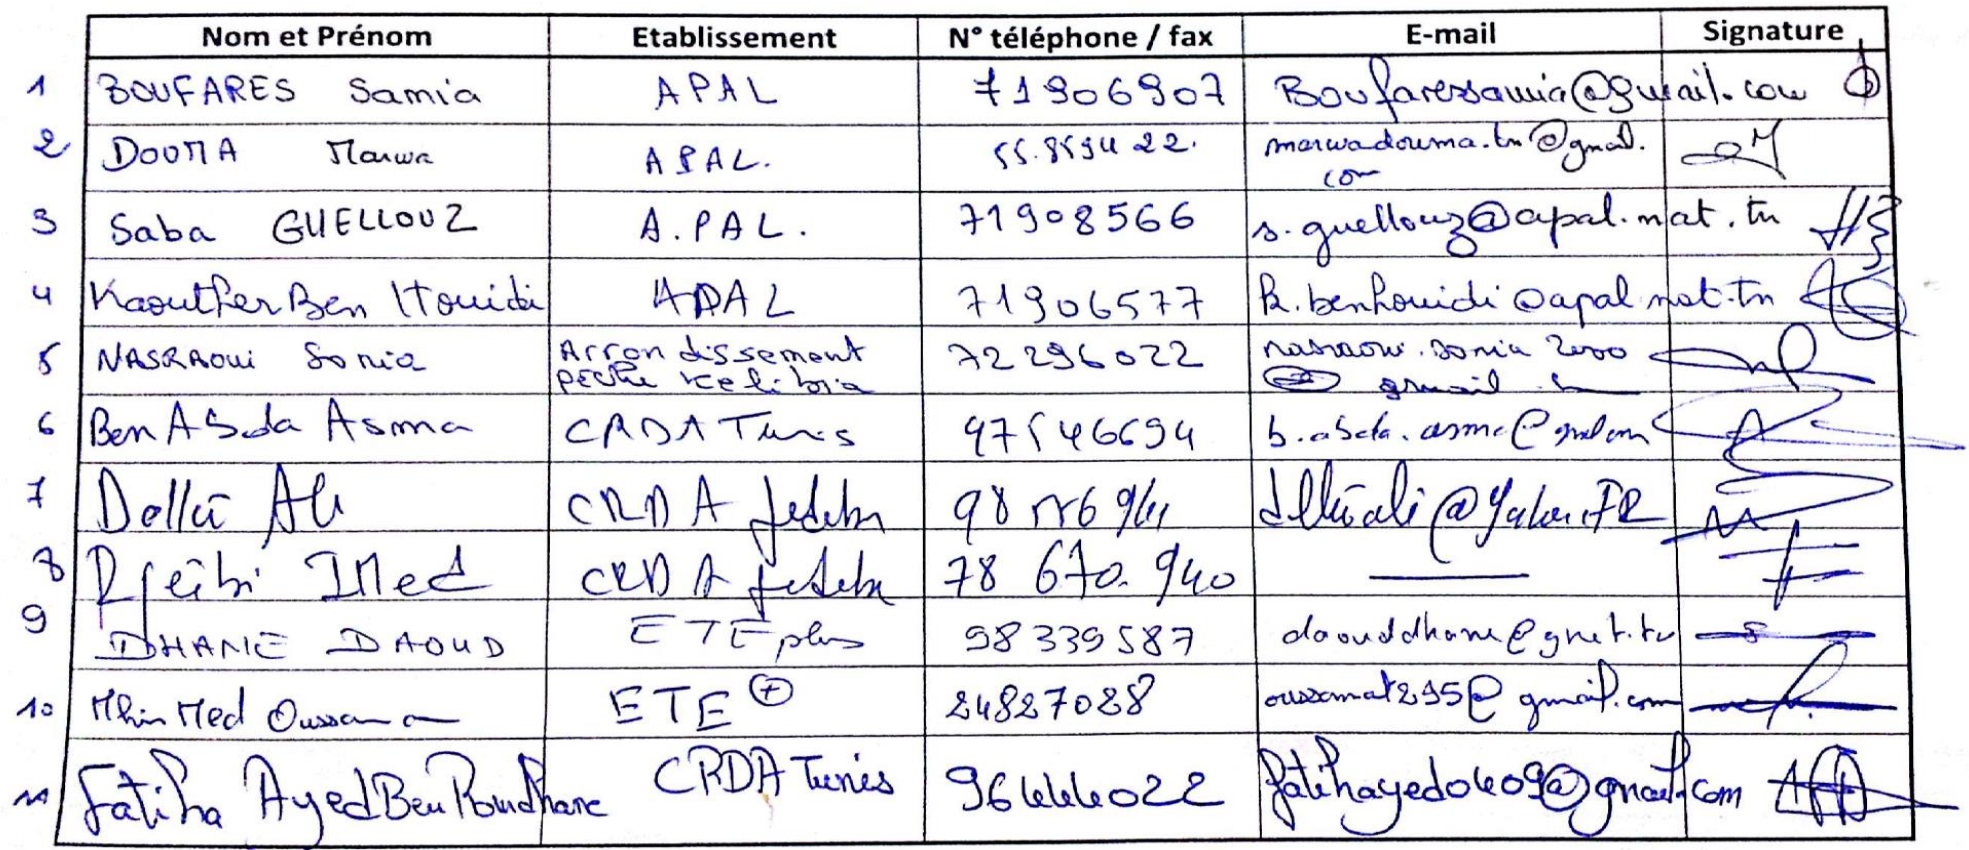 Nom et Prénom Etablissement N° téléphone / fax E-mail Signature
1 BOUFARES Samia APAL 71906907 Boufaressamia@gmail.com
2 DOUMA Marwa APAL. 55.859422. marwadouma.tn@gmail.
com
3 Saba GUELLOUZ A.PAL. 71908566 s.guellouz@apal.nat.tn
4 Kaouther Ben Houidi APAL 71906577 k.benhouidi@apal.nat.tn
5 NASRAOUI Sonia Arrondissement 72296022 nasraoui.sonia2000
pêche Kelibia gmail
6 Ben Abda Asma CRDA Tunis 97546694
7 Dellai Ali CRDA Jedeba 98
8 Rjeibi IMed CRDA Jedeba 78 670. 940
9 DHANE DAOUD ETE plus 98339587 daouddhane@gnet.tn
10 Mhiri Med Oussama ETE + 24827028 oussamat295@gmail.com
11 Fatiha Ayed Ben Romdhane CRDA Tunis 96444022 fatihayed0409@gmail.com